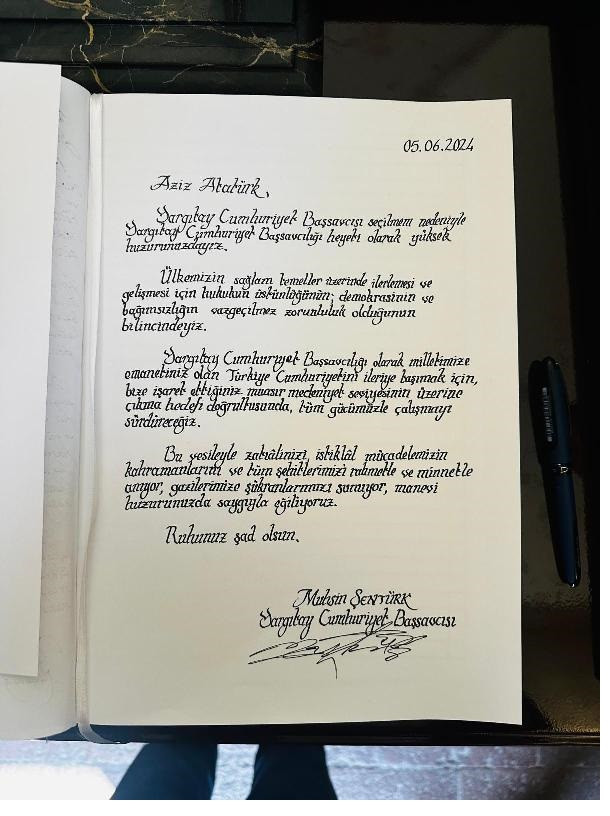 05.06.2024
Aziz Atatürk,
Yargıtay Cumhuriyet Başsavcısı seçilmem nedeniyle
Yargıtay Cumhuriyet Başsavcılığı heyeti olarak yüksek
huzurunuzdayız.
Ülkemizin sağlam temeller üzerinde ilerlemesi ve
gelişmesi için hukukun üstünlüğünün; demokrasinin ve
bağımsızlığın vazgeçilmez zorunluluk olduğunun
bilincindeyiz.
Yargıtay Cumhuriyet Başsavcılığı olarak milletimize
emanetiniz olan Türkiye Cumhuriyetini ileriye taşımak için,
bize işaret ettiğiniz muasır medeniyet seviyesinin üzerine
çıkma hedefi doğrultusunda, tüm gücümüzle çalışmayı
sürdüreceğiz.
Bu vesileyle zatıâlinizi, istiklâl mücadelemizin
kahramanlarını ve tüm şehitlerimizi rahmetle ve minnetle
anıyor, gazilerimize şükranlarımızı sunuyor, manevi
huzurunuzda saygıyla eğiliyoruz.
Ruhunuz şad olsun.
Muhsin ŞENTÜRK
Yargıtay Cumhuriyet Başsavcısı